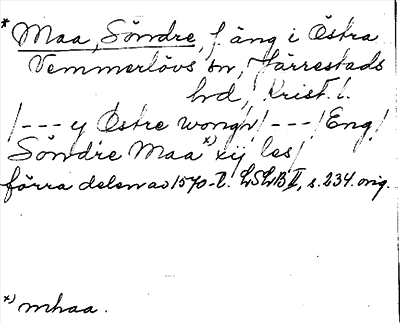 * Maa, Söndre, f. äng i Östra
Vemmerlövs sn, Järrestads
hd, Krist. l.
/--- y Östre wongn/---/Eng/
Söndre Maa *) xij les/
förra delen av 1570-t. LSLB II, s. 234. orig.
*) mhaa.